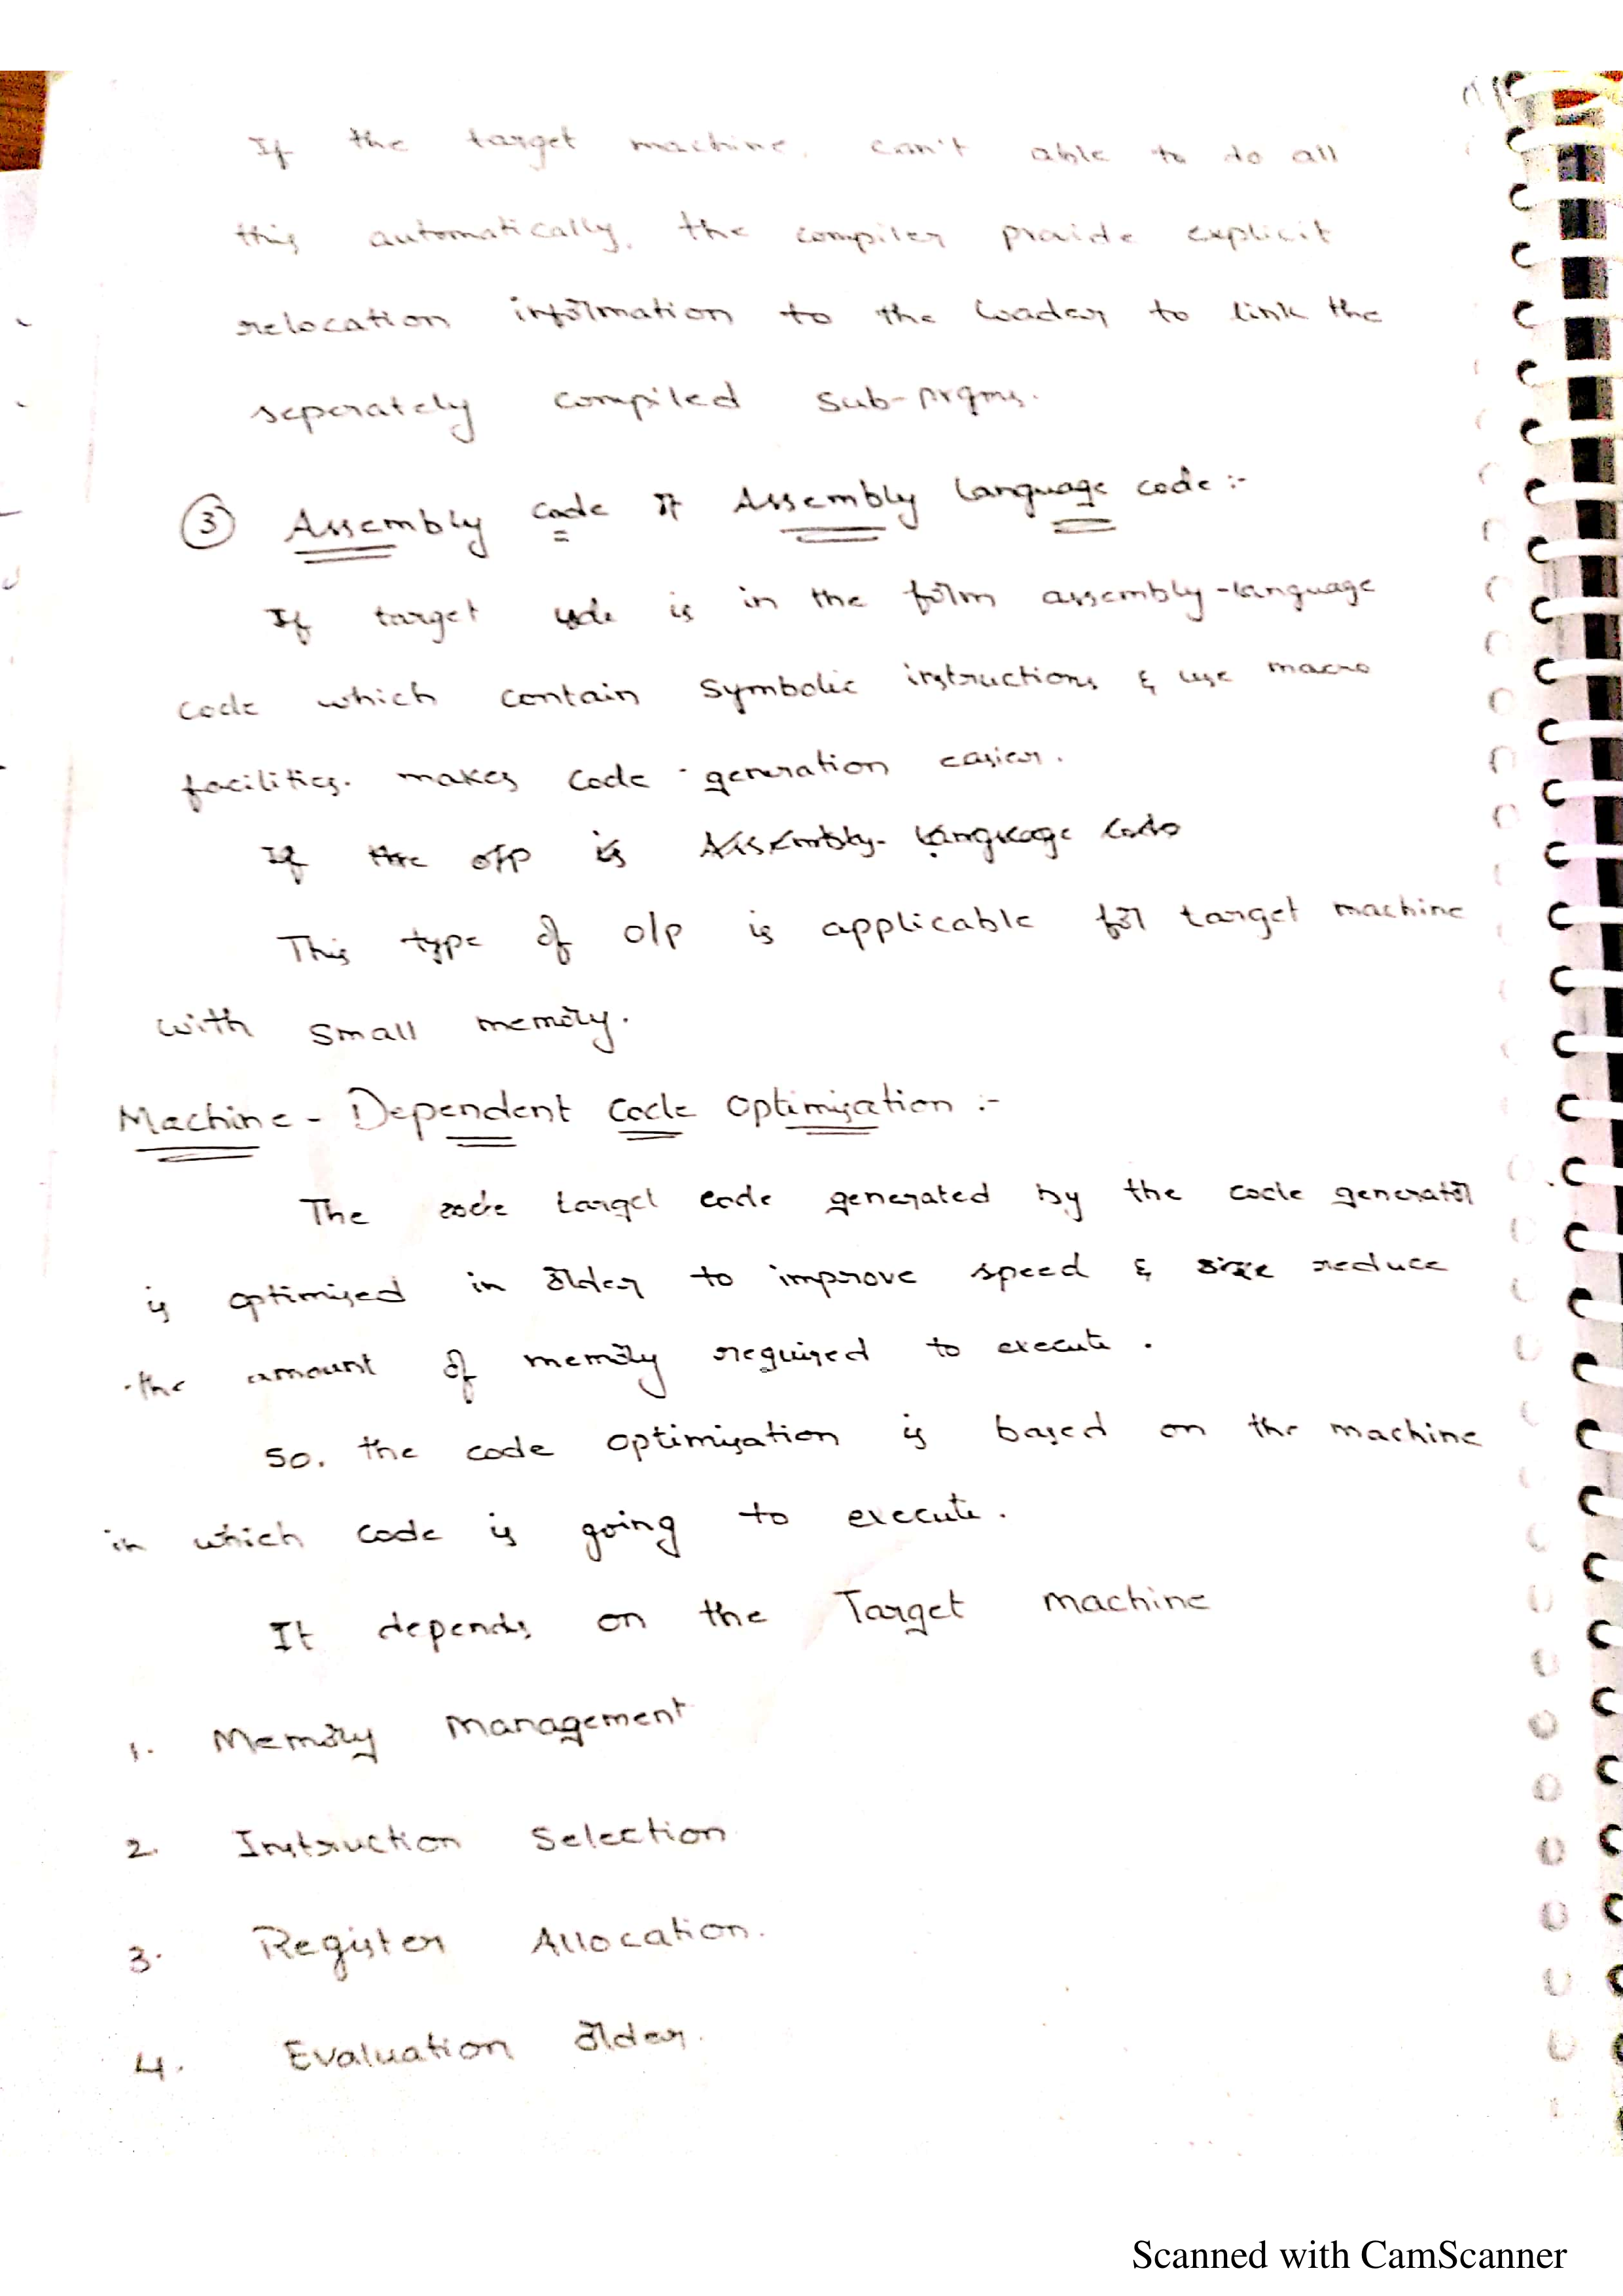 If the target machine, can't able to do all
this automatically, the compiler provide explicit
relocation information to the loader to link the
seperately compiled sub-prgms.
③ Assembly code or Assembly language code :-
If target code is in the form assembly-language
code which contain symbolic instructions & use macro
facilities. makes code generation easier.
If the o/p is Assembly-language code
This type of o/p is applicable for target machine
with small memory.
Machine-Dependent Code Optimization :-
The code target code generated by the code generator
is optimised in order to improve speed & size reduce
the amount of memory required to execute.
So, the code optimisation is based on the machine
in which code is going to execute.
It depends on the Target machine
1. Memory Management
2. Instruction Selection
3. Register Allocation.
4. Evaluation order.
Scanned with CamScanner